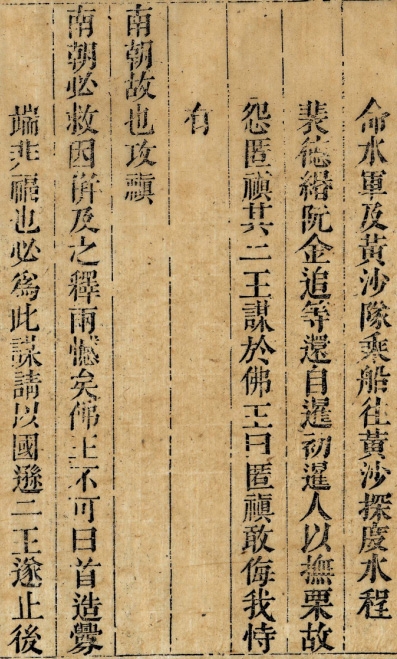 命水軍及黃沙隊乘船往黃沙探度水程
裴德縉阮金追等還自暹初暹人以撫栗故
怨匿禛其二王謀於佛王曰匿禛敢侮我恃
有
南朝故也攻禛
南朝必救因併及之釋兩憾矣佛王不可曰首造釁
端非福也必爲此謀請以國遜二王遂止後